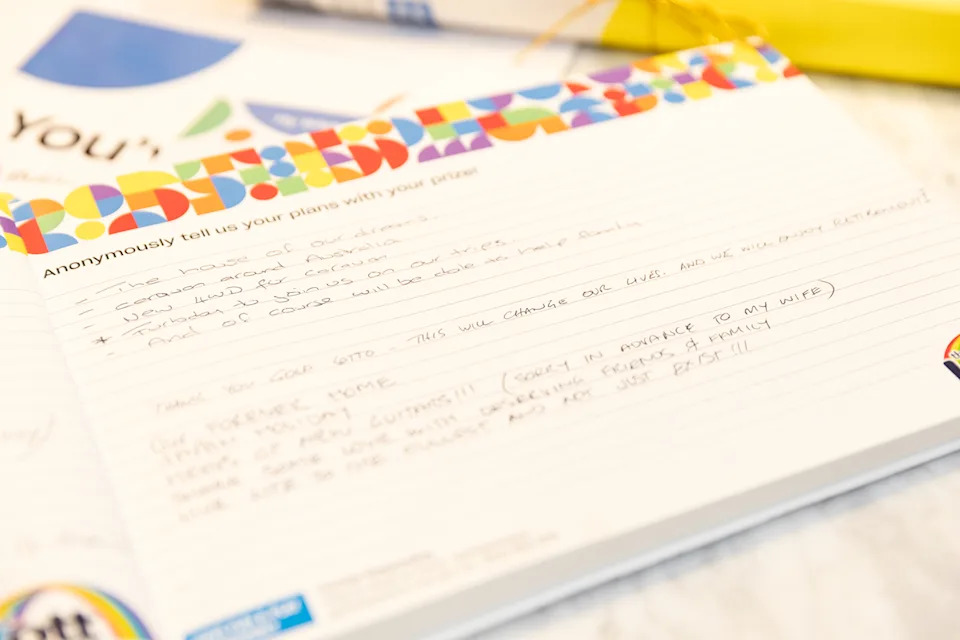 YOU"
Anonymously tell us your plans with your prize!
- The house of our dreams.
- caravan around Australia
- New 4WD for caravan
* to join us on our trips.
- And of course will be able to help family
THANK YOU GOLD LOTTO. THIS WILL CHANGE OUR LIVES. AND WE WILL ENJOY RETIREMENT!
FOREVER HOME
HOLIDAY
NEW GUITARS!!! (SORRY IN ADVANCE TO MY WIFE)
SHARE SOME LOVE WITH DESERVING FRIENDS & FAMILY
AND NOT JUST EXIST!!!
ott